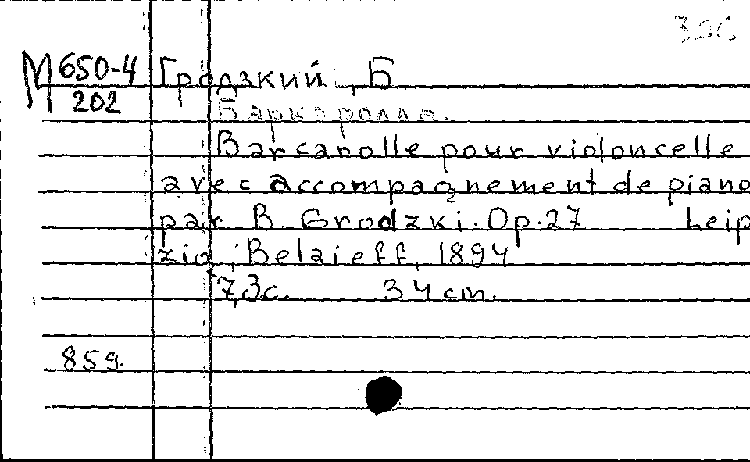 М 650-4 Гродзкий, Б
202
Баркаролла.
Barcarolle pour violoncelle
avec accompagnement de piano
par B. Grodzki. Op. 27 Leip
zig, Belaieff, 1894
7,3 с. 34 cm.
859.